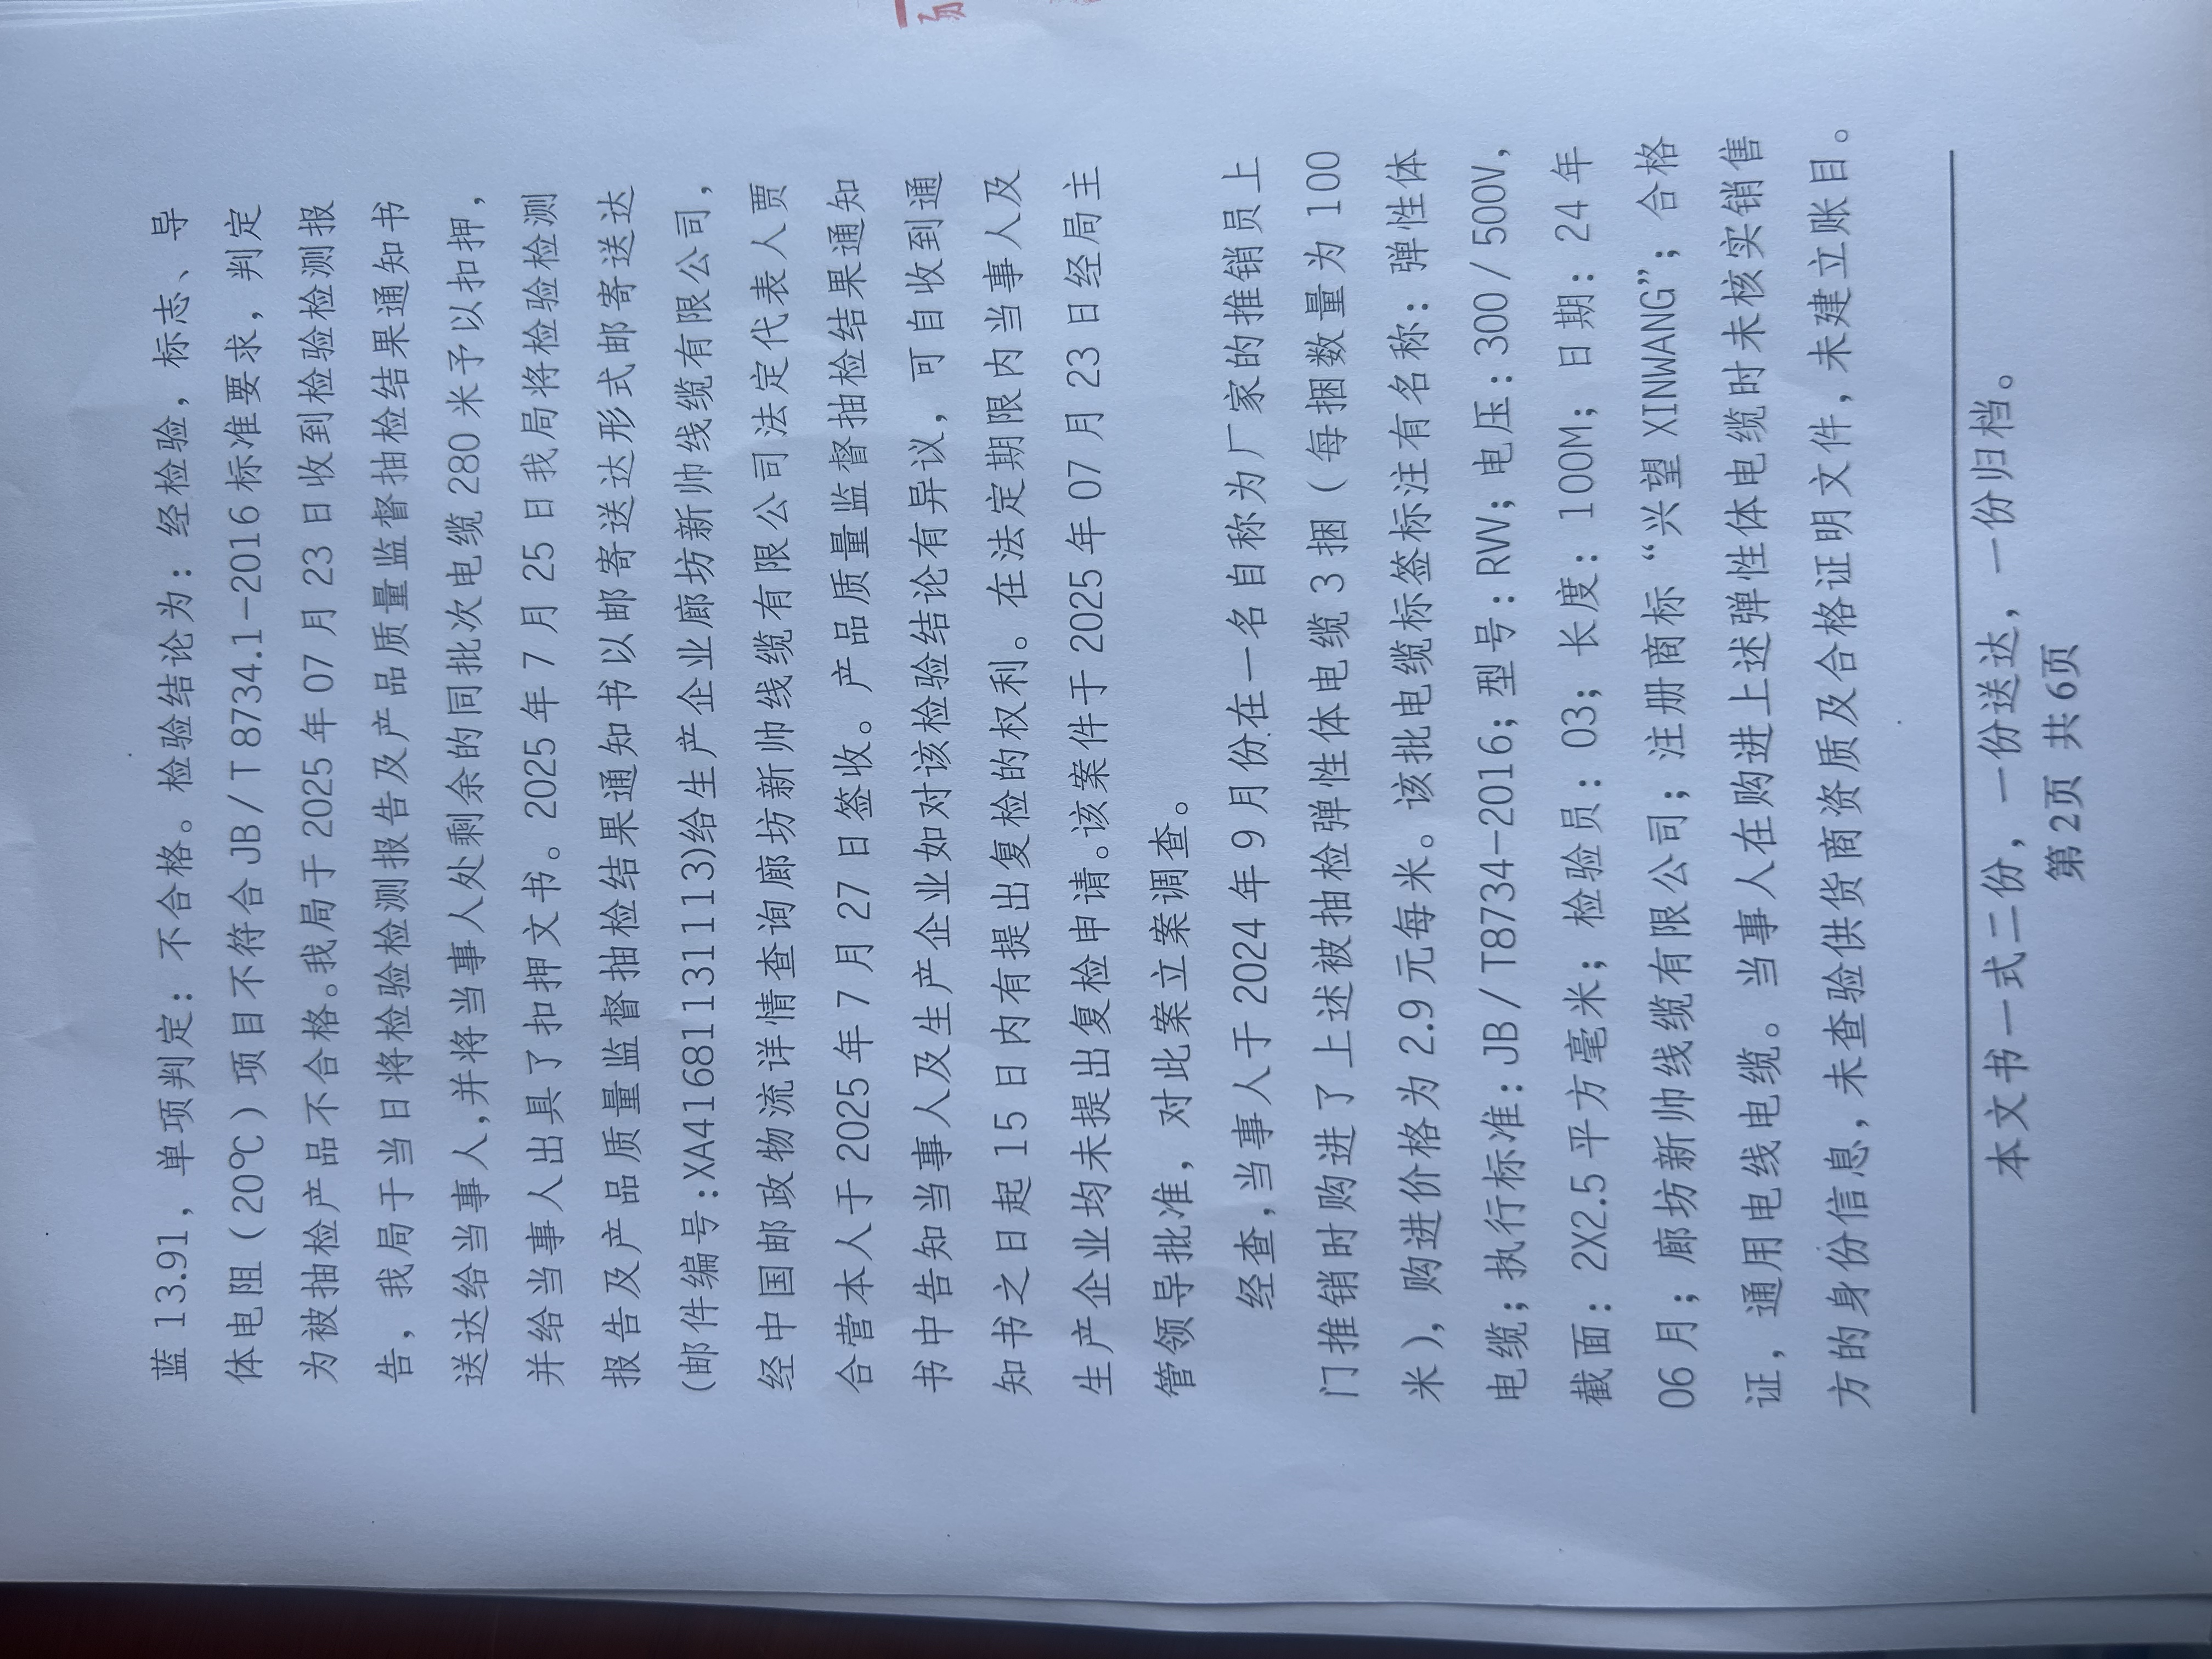 蓝 13.91，单项判定：不合格。检验结论为：经检验，标志、导
体电阻（20℃）项目不符合 JB/T 8734.1-2016 标准要求，判定
为被抽检产品不合格。我局于 2025 年 07 月 23 日收到检验检测报
告，我局于当日将检验检测报告及产品质量监督抽检结果通知书
送达给当事人,并将当事人处剩余的同批次电缆 280 米予以扣押，
并给当事人出具了扣押文书。2025 年 7 月 25 日我局将检验检测
报告及产品质量监督抽检结果通知书以邮寄送达形式邮寄送达
(邮件编号:XA41681131113)给生产企业廊坊新帅线缆有限公司，
经中国邮政物流详情查询廊坊新帅线缆有限公司法定代表人贾
合营本人于 2025 年 7 月 27 日签收。产品质量监督抽检结果通知
书中告知当事人及生产企业如对该检验结论有异议，可自收到通
知书之日起 15 日内有提出复检的权利。在法定期限内当事人及
生产企业均未提出复检申请。该案件于 2025 年 07 月 23 日经局主
管领导批准，对此案立案调查。
经查,当事人于 2024 年 9 月份在一名自称为厂家的推销员上
门推销时购进了上述被抽检弹性体电缆 3 捆（每捆数量为 100
米），购进价格为 2.9 元每米。该批电缆标签标注有名称：弹性体
电缆；执行标准：JB/T8734-2016；型号：RVV；电压：300/500V，
截面：2X2.5 平方毫米；检验员：03；长度：100M；日期：24 年
06 月；廊坊新帅线缆有限公司；注册商标“兴望 XINWANG”；合格
证，通用电线电缆。当事人在购进上述弹性体电缆时未核实销售
方的身份信息，未查验供货商资质及合格证明文件，未建立账目。
本文书一式二份，一份送达，一份归档。
第 2页 共 6页